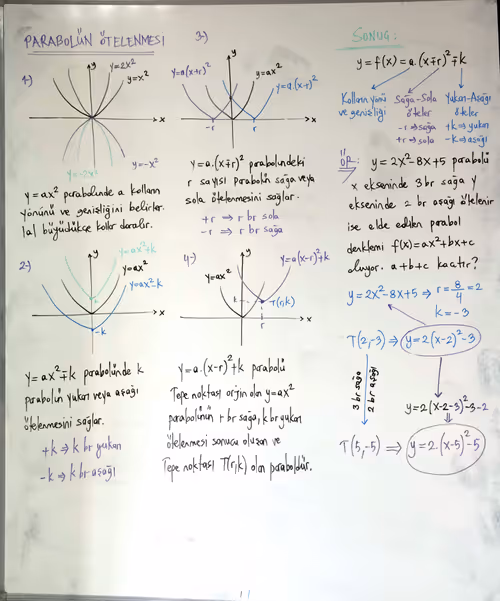 PARABOLÜN ÖTELENMESİ
1-)
y
y=2x²
y=x²
x
y=-x²
y=-2x²
y=ax² parabolünde a kolların
yönünü ve genişliğini belirler.
|a| büyüdükçe kollar daralır.
2-)
y
y=ax²+k
y=ax²
y=ax²-k
x
-k
y=ax²∓k parabolünde k
parabolün yukarı veya aşağı
ötelenmesini sağlar.
+k ⇒ k br yukarı
-k ⇒ k br aşağı
3-)
y
y=a(x+r)²
y=ax²
y=a.(x-r)²
-r
r
x
y=a.(x∓r)² parabolündeki
r sayısı parabolün sağa veya
sola ötelenmesini sağlar.
+r ⇒ r br sola
-r ⇒ r br sağa
4-)
y
y=a(x-r)²+k
y=ax²
k
T(r,k)
r
x
y=a.(x-r)²+k parabolü
Tepe noktası orjin olan y=ax²
parabolünün r br sağa, k br yukarı
ötelenmesi sonucu oluşan ve
Tepe noktası T(r,k) olan paraboldür.
SONUÇ:
y=f(x)=a.(x∓r)²∓k
Kolların yönü
ve genişliği
Sağa-Sola
öteler
-r⇒sağa
+r⇒sola
Yukarı-Aşağı
öteler
+k⇒yukarı
-k⇒aşağı
ÖR: y=2x²-8x+5 parabolü
x ekseninde 3 br sağa y
ekseninde 2 br aşağı ötelenir
ise elde edilen parabol
denklemi f(x)=ax²+bx+c
oluyor. a+b+c kaçtır?
y=2x²-8x+5 ⇒ r=8/4=2
k=-3
T(2,-3) ⇒ y=2(x-2)²-3
3 br sağa
2 br aşağı
y=2(x-2-3)²-3-2
T(5,-5) ⇒ y=2.(x-5)²-5